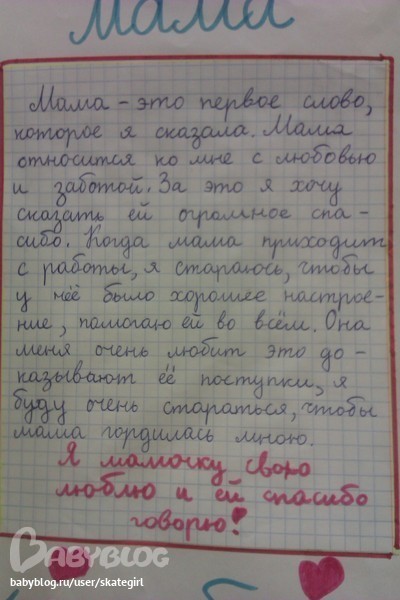 Мама
Мама - это первое слово,
которое я сказала. Мама
относится ко мне с любовью
и заботой. За это я хочу
сказать ей огромное спа-
сибо. Когда мама приходит
с работы, я стараюсь, чтобы
у неё было хорошее настрое-
ние, помогаю ей во всём. Она
меня очень любит это до-
казывают её поступки, я
буду очень стараться, чтобы
мама гордилась мною.
Я мамочку свою
люблю и ей спасибо
говорю!
BABYBLOG
babyblog.ru/user/skategirl